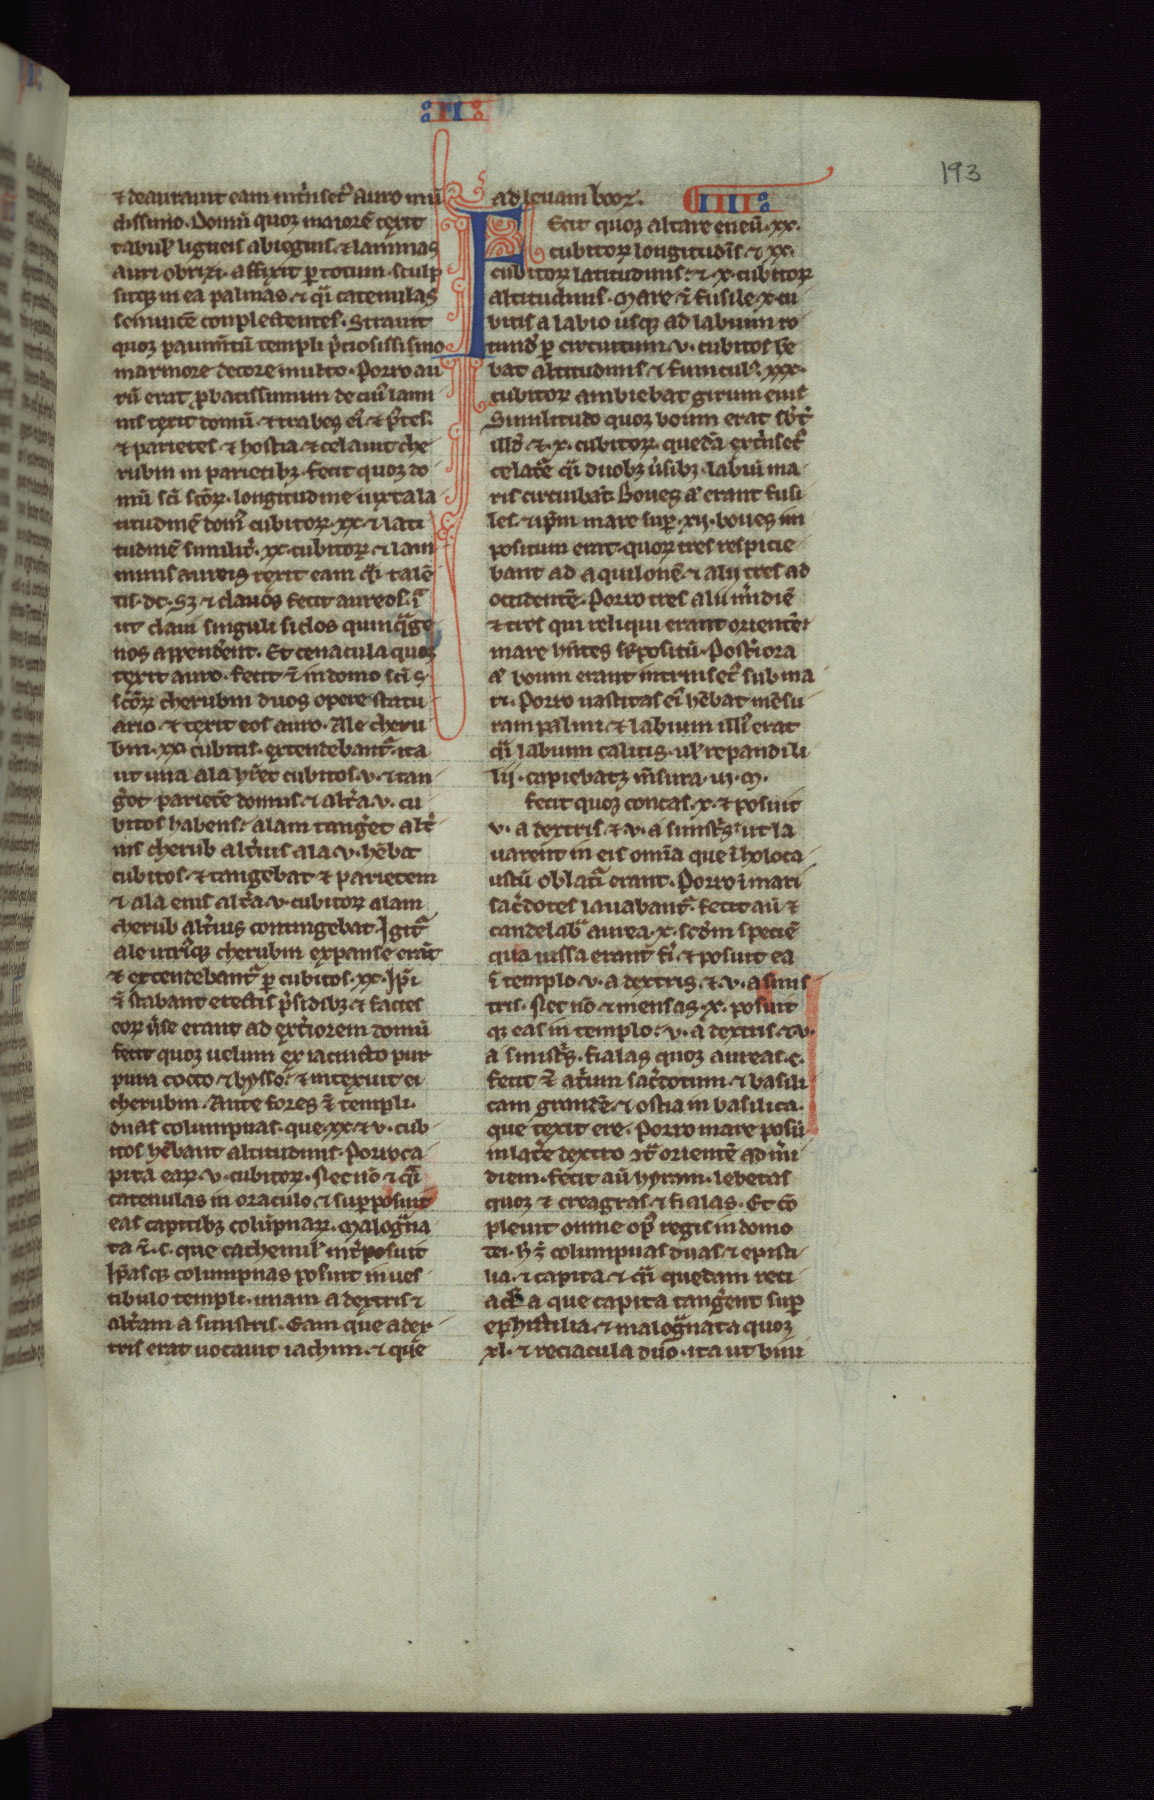 II
193
⁊ deaurauit eam int᷑insec᷑ auro mu
dissimo. Domū quoꝫ maiorē texit
tabul᷑ ligneis abiegnis. ⁊ laminas
auri obrizi affixit ꝑ totum. sculp
sitqꝫ in ea palmas. ⁊ q᷑i catenulas
se inuicē conplectentes. Strauit
quoꝫ pauim̄tū templi p᷑ciosissimo
marmore decore multo. Porro au
rū erat ꝓbatissimum de cui᷑ lami
nis texit domū. ⁊ trabes ei᷑ ⁊ p᷑tes.
⁊ parietes ⁊ hostia. ⁊ celauit che
rubin in parietibꝫ. Fecit quoꝫ do
mū sc̄i sc̄oꝝ. longitudine iuxta la
titudinē dom᷑ cubitoꝝ. xx. ⁊ lati
tudinē similit᷑. xx. cubitoꝝ. ⁊ lam
minis aureis texit eam q̄i talē
tis. dc. Sꝫ ⁊ clauos fecit aureos. ī
ut claui singuli siclos quinq᷑ge
nos appenderent. Et cenacula quoꝫ
texit auro. Fecit ē in domo sc̄i s
sc̄oꝝ cherubin duos opere statu
ario. ⁊ texit eos auro. Ale cheru
bin. xx. cubitis. extendebant᷑. ita
ut una ala h᷑et cubitos. v. ⁊ tan
g᷑et parietē domus. ⁊ alt᷑a. v. cu
bitos habens. alam tang᷑et alt᷑
ius cherub alt᷑ius ala. v. hēbat
cubitos. ⁊ tangebat ⁊ parietem
⁊ ala eius alt᷑a. v. cubitoꝝ alam
cherub alt᷑ius contingebat. Igit᷑
ale utriusqꝫ cherubin expanse erāt
⁊ extendebant᷑ ꝑ cubitos. xx. Ip̄i
ē stabant erectis p᷑sidibꝫ. ⁊ facies
eoꝝ u᷑se erant ad ext᷑iorem domū
Fecit quoꝫ uelum ex iacincto pur
pura cocco ⁊ bysso. ⁊ intexuit ei
cherubin. Ante fores ē templi.
duas columpnas. que. xx. ⁊ v. cub
itos hēbant altitudinis. Porro ca
pita eaꝝ. v. cubitoꝝ. Nec nō ⁊ q᷑i
catenulas in oraculo. ⁊ suꝑposuit
eas capitibꝫ colūpnaꝝ. Malog᷑na
ta ē. c. que cathenul᷑ int᷑posuit
Ip̄asqꝫ columpnas posuit in ues
tibulo templi. unam a dextris ⁊
alt᷑am a sinistris. Eam que a dex
tris erat uocauit iachim. ⁊ que
ad leuam booz. IIII
Fecit quoꝫ altare eneū. xx.
cubitoꝝ longitudīs. ⁊ xx.
cubitoꝝ latitudinis. ⁊ x. cubitoꝝ
altitudinis. Mare ē fusile. x. cu
bitis a labio usqꝫ ad labium ro
tund᷑ ꝑ circuitum. v. cubitos he
bat altitudinis. ⁊ funicul᷑. xxx.
cubitoꝝ ambiebat girum eius
Similitudo quoꝫ boum erat sb̄t᷑
illd᷑ ⁊. x. cubitoꝝ. quedā ext᷑insec᷑
celat᷑e q᷑i duobꝫ u᷑sibꝫ. labiū ma
ris circuibāt. Boues ā erant fusi
les. ⁊ ip̄m mare suꝑ. xii. boues im
positum erat. quoꝝ tres respicie
bant ad aquilonē. ⁊ alij tres ad
occidentē. Porro tres alii m᷑idiē
⁊ tres qui reliqui erant orientē.
mare h᷑ntes suꝑpositū. Post᷑iora
ā boum erant intrinsec᷑ sub ma
ri. Porro uastitas ei᷑ hēbat mēsu
ram palmi. ⁊ labium illi᷑ erat
q᷑i labium calicis. ul᷑ repandi li
lij. capiebatqꝫ m̄sura. iii. m̄.
Fecit quoꝫ concas. x. ⁊ posuit
v. a dextris. ⁊ v. a sinist᷑s. ut la
uarent in eis om̄ia que ī holoca
ustū oblat᷑i erant. Porro ī mari
sac᷑dotes lauabant᷑. Fecit aū ⁊
candelab᷑a aurea. x. sc̄dm speciē
qua iussa erant fi᷑. ⁊ posuit ea
ī templo. v. a dextris. ⁊ v. a sinis
tris. Nec nō ⁊ mensas. x. posuit
qꝫ eas in templo. v. a dextris. ⁊ v.
a sinist᷑s. Fialas quoꝫ aureas. c.
Fecit ē at᷑ium sac᷑dotum. ⁊ basili
cam grandē. ⁊ ostia in basilica.
que texit ere. Porro mare posū
in lat᷑e dextro 9t᷑ orientē ad m᷑i
diem. Fecit aū hyram. lebetas
quoꝫ ⁊ creagras. ⁊ fialas. Et cō
pleuit omne op᷑ regis in domo
dei. h̄ ē columpnas duas. ⁊ episti
lia. ⁊ capita. ⁊ q᷑i quedam reti
acl᷑a que capita tang᷑ent suꝑ
ephistilia. ⁊ malog᷑nata quoꝫ
xl. ⁊ reciacula duo. ita ut bini